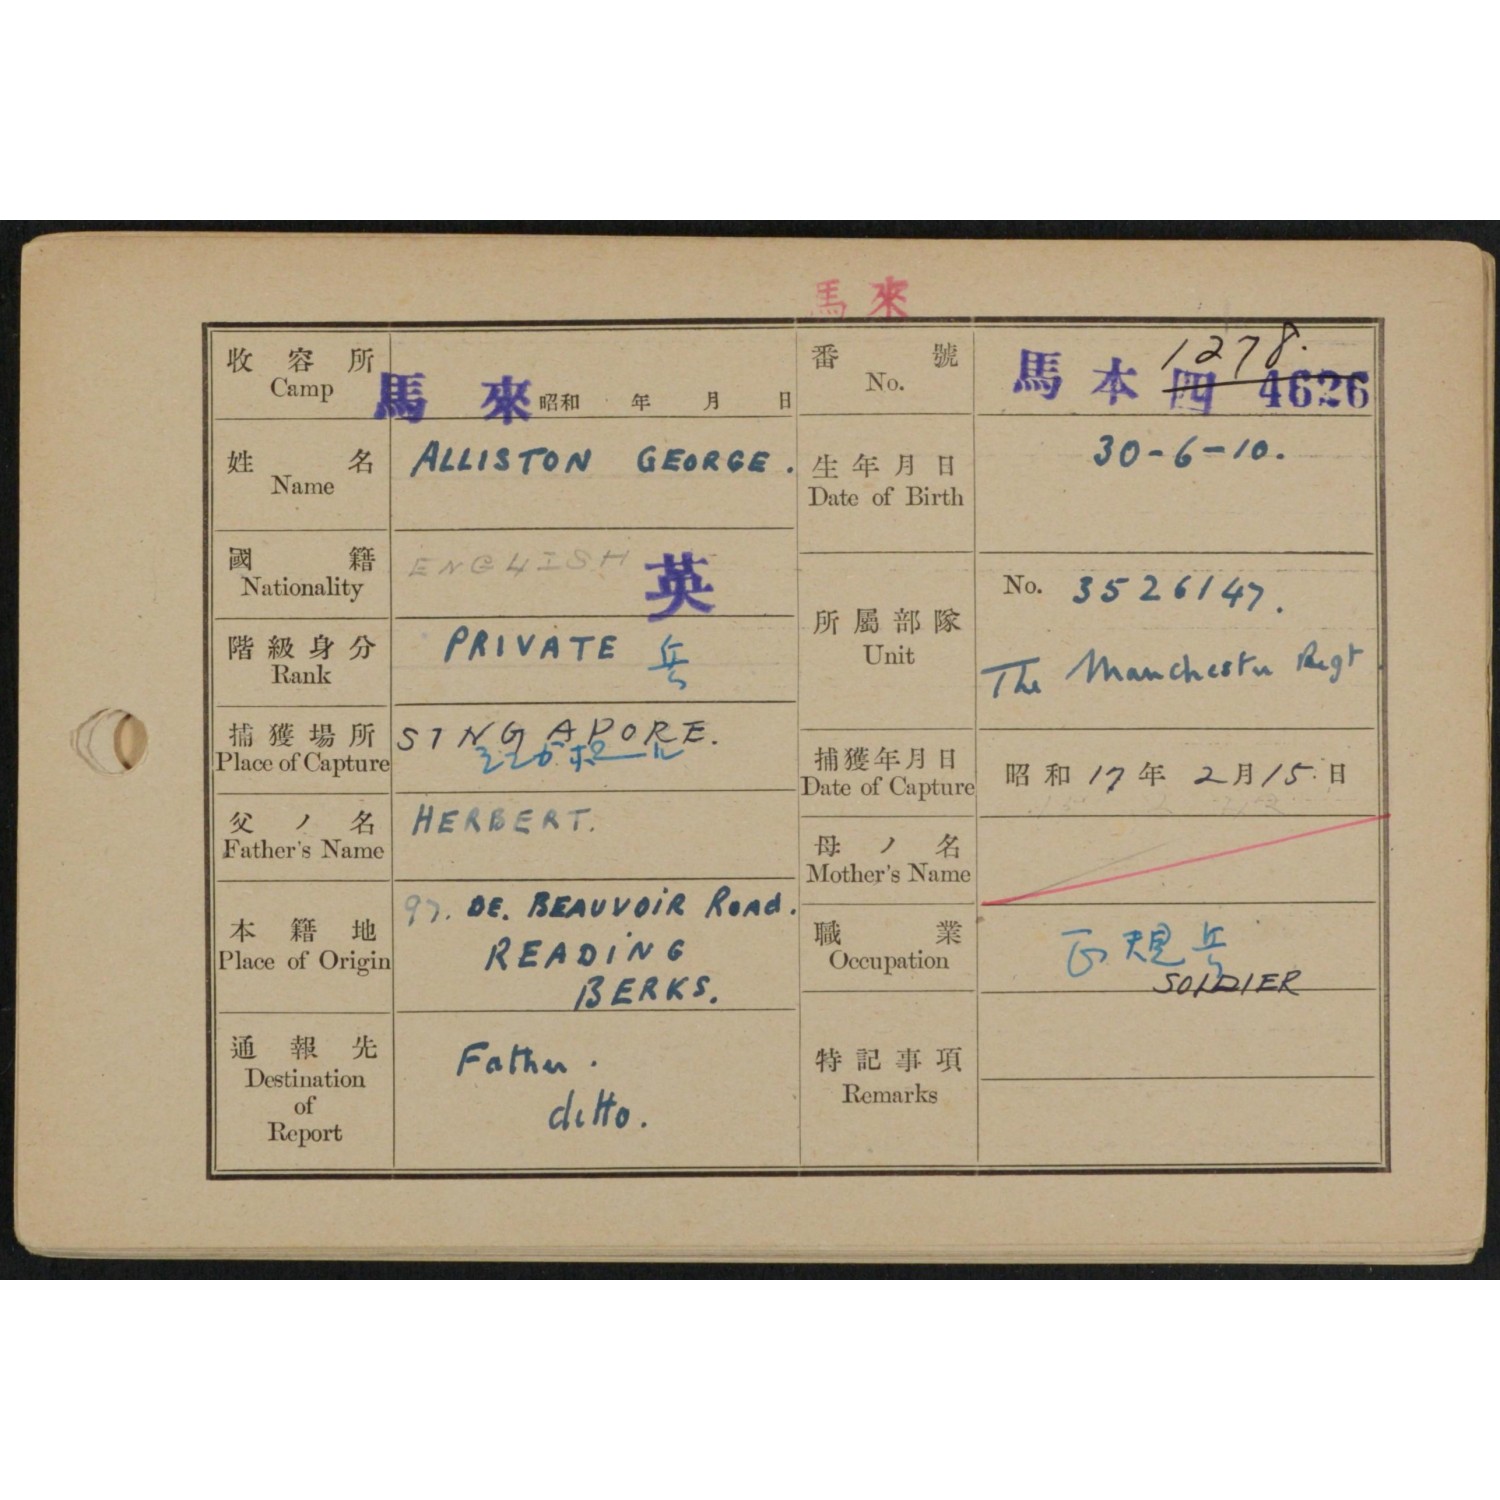 馬來
收容所
Camp
馬來 昭和 年 月 日
番號
No.
馬本四 4626
1278.
姓名
Name
ALLISTON GEORGE.
生年月日
Date of Birth
30-6-10.
國籍
Nationality
ENGLISH 英
階級身分
Rank
PRIVATE 兵
所屬部隊
Unit
No. 3526147.
The Manchester Regt
捕獲場所
Place of Capture
SINGAPORE.
捕獲年月日
Date of Capture
昭和17年2月15日
父ノ名
Father's Name
HERBERT.
母ノ名
Mother's Name
本籍地
Place of Origin
97. DE. BEAUVOIR ROAD.
READING
BERKS.
職業
Occupation
正規兵
SOLDIER
通報先
Destination
of
Report
Father.
ditto.
特記事項
Remarks